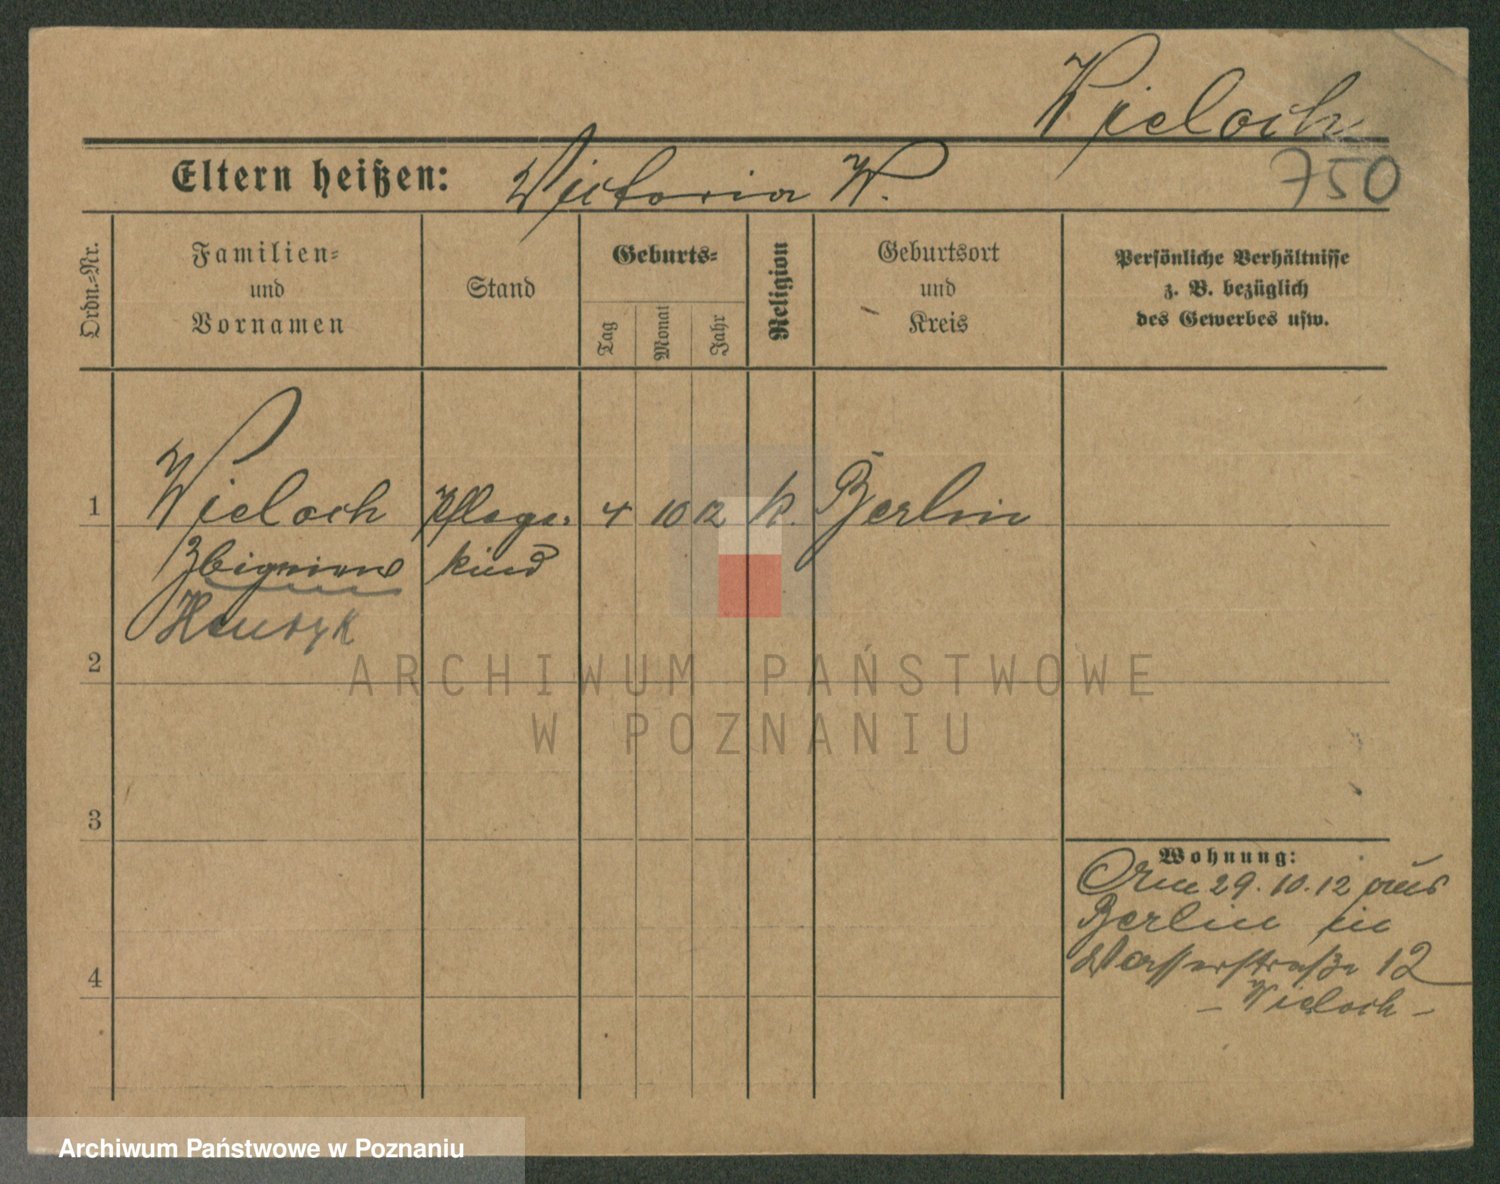 Wieloch
750
Eltern heißen: Victoria W.
Ordn.-Nr.
Familien-
und
Vornamen
Stand
Geburts-
Tag
Monat
Jahr
Religion
Geburtsort
und
Kreis
Persönliche Verhältnisse
z. B. bezüglich
des Gewerbes usw.
1 Wieloch Pflege- 4 10 12 k. Berlin
Zbigniew kind
Henryk
2
ARCHIWUM PAŃSTWOWE
W POZNANIU
3
Wohnung:
Am 29.10.12 aus
Berlin in
4 Wasserstraße 12
- Wieloch -
Archiwum Państwowe w Poznaniu